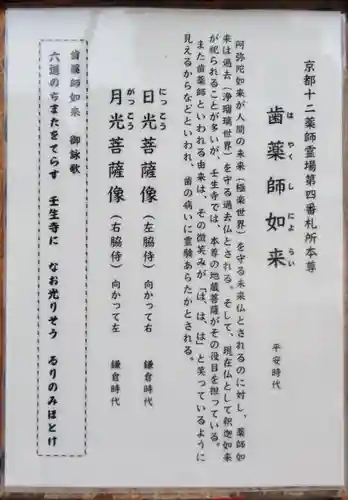 京都十二薬師霊場第四番札所本尊
は やくし によらい
歯薬師如来 平安時代
阿弥陀如来が人間の未来（極楽世界）を守る未来仏とされるのに対し、薬師如
来は過去（浄瑠璃世界）を守る過去仏とされる。そして、現在仏として釈迦如来
が祀られることが多いが、壬生寺では、本尊の地蔵菩薩がその役目を担っている。
また歯薬師といわれる由来は、その微笑みが「は、は、は」と笑っているように
見えるからなどといわれ、歯の病いに霊験あらたかとされる。
にっこう
日光菩薩像（左脇侍）向かって右 鎌倉時代
がっこう
月光菩薩像（右脇侍）向かって左 鎌倉時代
歯薬師如来 御詠歌
六道のちまたをてらす 壬生寺に なお光りそう るりのみほとけ